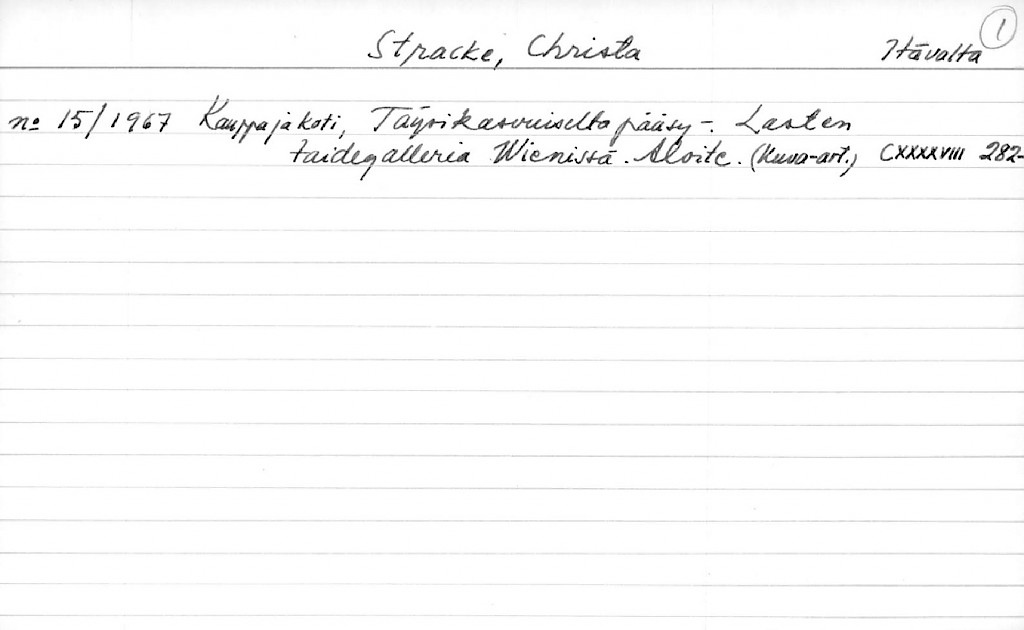 Stracke, Christa Itävalta 1
no 15/1967 Kauppa ja koti, Täysikasvuiselta pääsy -. Lasten
taidegalleria Wienissä. Aloite. (Kuva-art.) CXXXXVIII 282-